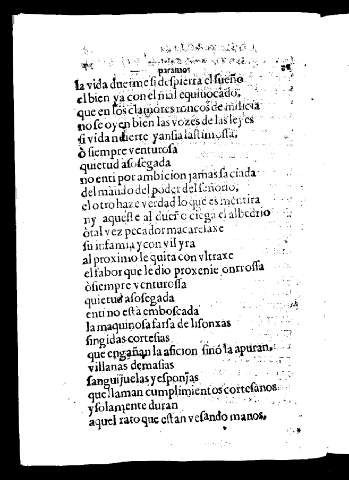 paramos
la vida duerme si despierta el sueño
el bien ya con el mal equiuocado,
que en los clamores roncos de milicia
no se oyen bien las vozes de las leyes
si vida muerte y ansia lastimossa,
ò siempre venturosa
quietud asosegada
no en ti por ambicion jamas saciada
del mando del poder del señorio,
el otro haze verdad lo que es mentira
ny aqueste al dueño ciega el albedrio
ò tal vez pecador
su infamia y con vil yra
al proximo le quita con vltraxe
el fabor que le dio
ò siempre venturossa
quietud asosegada
en ti no està emboscada
la maquinosa farsa de lisonxas
fingidas cortesias
que engañan la aficion sinò la apuran,
villanas demasias
sanguijuelas y esponjas
que llaman cumplimientos cortesanos
y solamente duran
aquel rato que estan vesando manos,